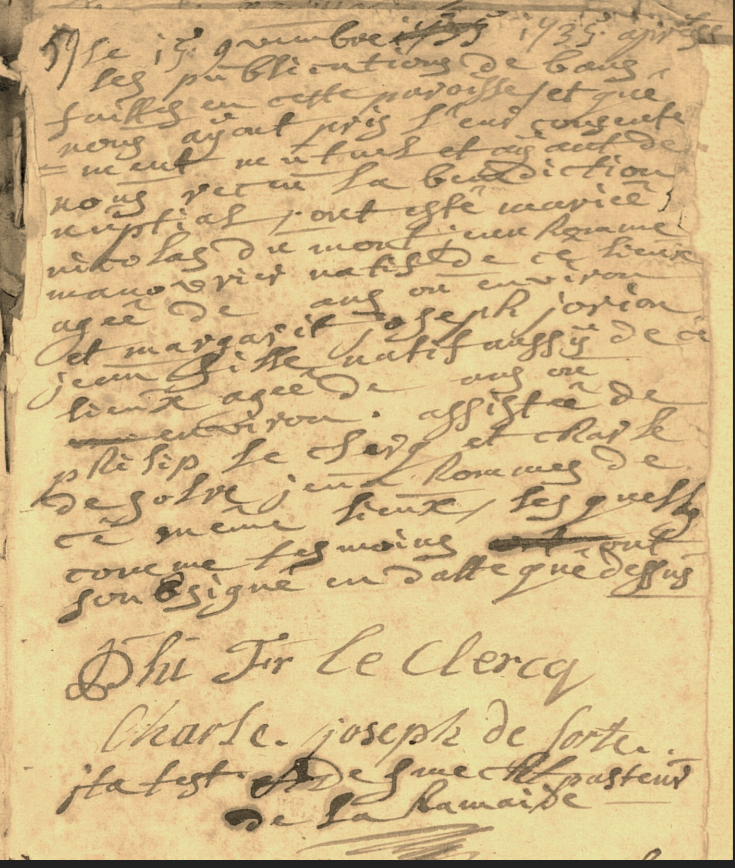 59 Le 15 9vembre 1735 apres
les publications de bans
faittes en cette paroisse et que
nous ayant pris leur consente
= ment mutuel et ayant de
nous recue la benediction
nuptial, ont esté marieé
nicolas du mont jeun homme
manovrier natif de ce lieux
ageé de ans ou environ
et margarit joseph jorion
jeun fille natif aussÿ de ce
lieux ageé de ans ou
environ. assisteé de
philip le cherq et charle
de solre jeun hommes de
ce méme lieux, les quells
comme tesmoins ont
soubsigné en datte que dessus
Phi Fr le Clercq
Charle. joseph de sorte.
ita test pasteur
de la hamaide